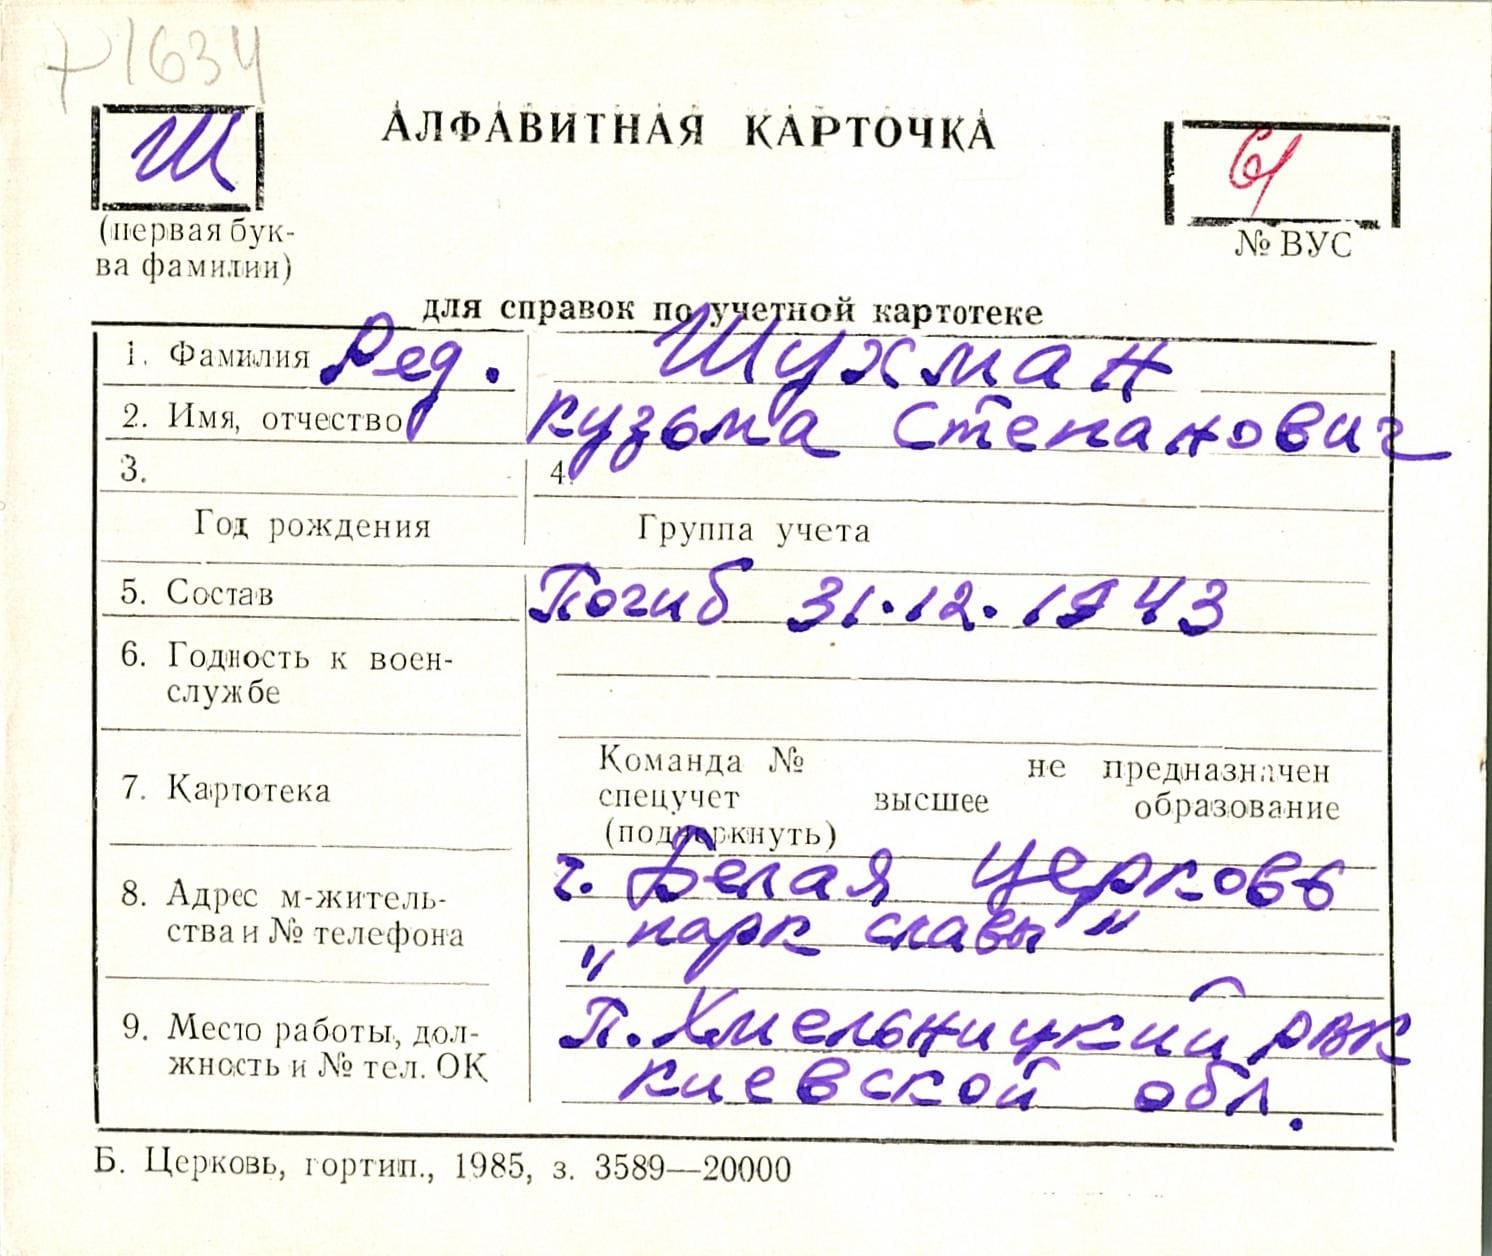 1634
Ш
АЛФАВИТНАЯ КАРТОЧКА
61
(первая бук-
ва фамилии)
№ ВУС
для справок по учетной картотеке
1. Фамилия Ряд. Шухман
2. Имя, отчество Кузьма Степанович
3. 4.
Год рождения Группа учета
5. Состав Погиб 31.12.1943
6. Годность к воен-
службе
7. Картотека
Команда № не предназначен
спецучет высшее образование
(подчеркнуть)
8. Адрес м-житель-
ства и № телефона
г. Белая Церковь
"парк славы"
9. Место работы, дол-
жность и № тел. ОК
П. Хмельницкий РВК
Киевской обл.
Б. Церковь, гортип., 1985, з. 3589—20000